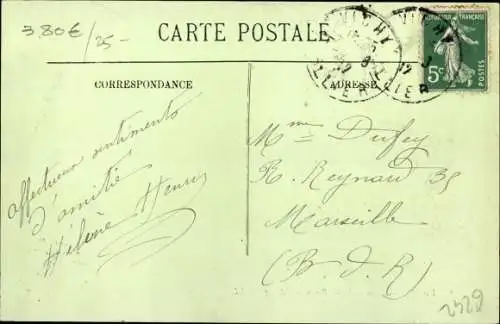 3.80€/25-
CARTE POSTALE
CORRESPONDANCE
ADRESSE
VICHY
ALLIER
VICHY
ALLIER
REPUBLIQUE FRANÇAISE
5c
POSTES
Affectueux sentiments
d'amitié
Hélène Henry
Mme Dufey
R. Reynard 35
Marseille
(B. d. R)
2429